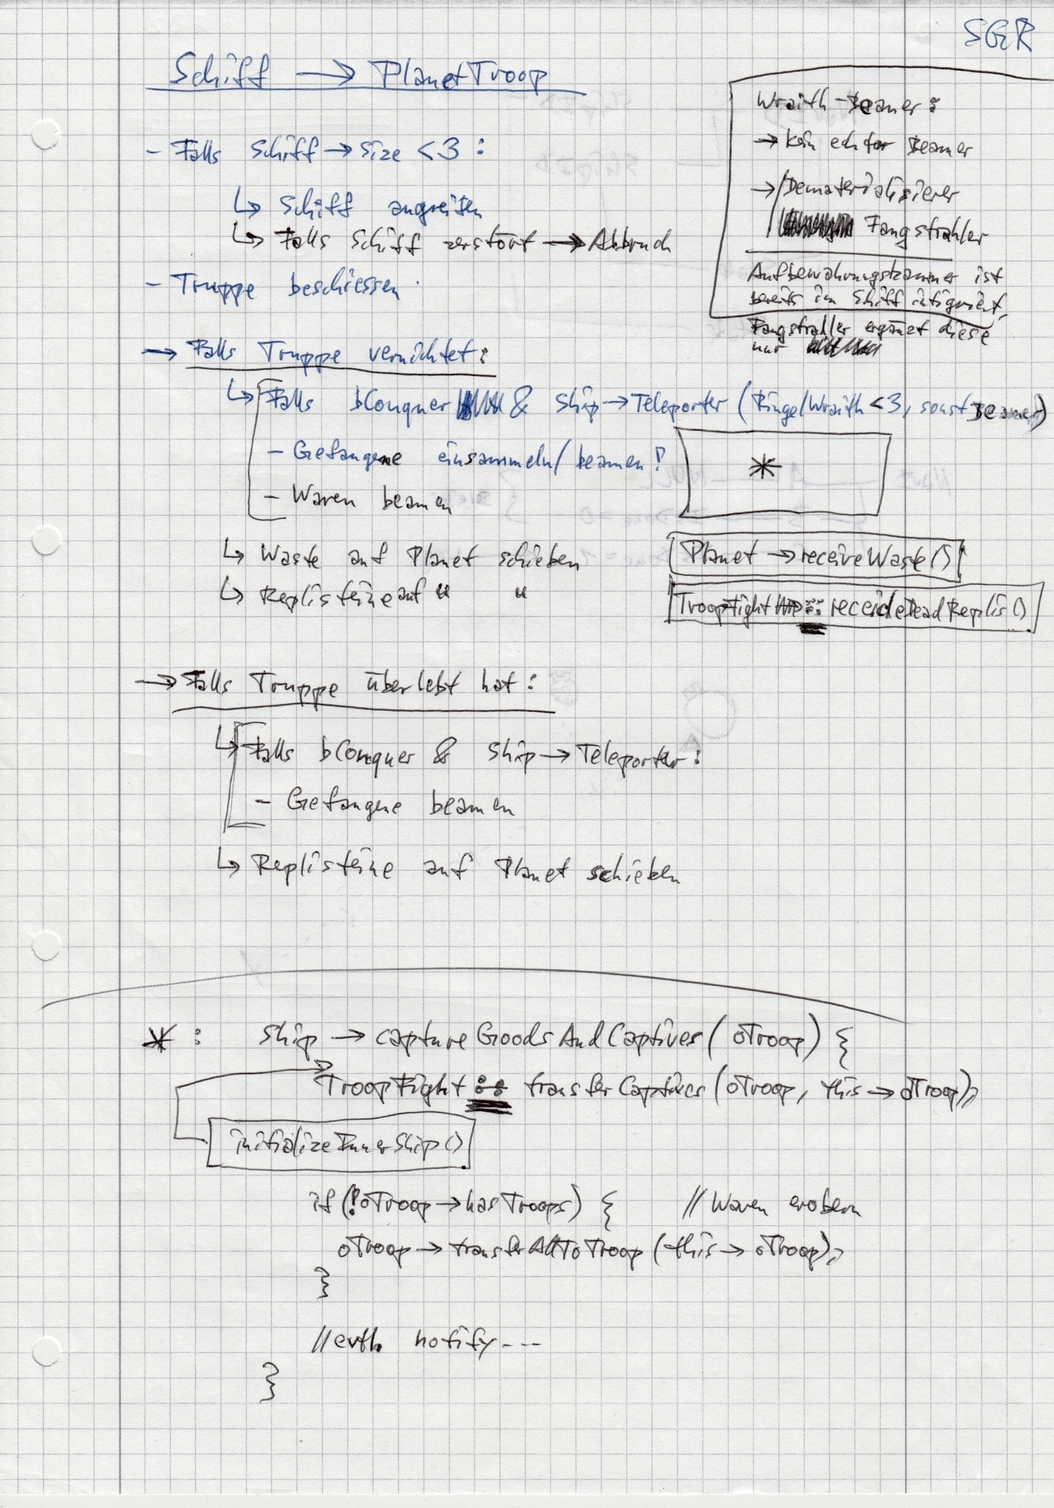 SGR
Schiff → PlanetTroop
Wraith-Beamer:
→ kein echter Beamer
→ Dematerialisierer
Fangstrahler
Aufbewahrungskammer ist
bereits im Schiff intigriert,
Fangstrahler ergänzt diese
nur
- Falls Schiff → Size < 3 :
↳ Schiff angreifen
↳ Falls Schiff zerstört → Abbruch
- Truppe beschiessen
→ Falls Truppe vernichtet:
↳ Falls bConquer & Ship → Teleporter (Ringe/Wraith < 3, sonst Beamer)
- Gefangene einsammeln/beamen!
- Waren beamen
*
↳ Waste auf Planet schieben
Planet → receiveWaste()
↳ Replisteine auf " "
TroopFight :: receideDeadReplis()
→ Falls Truppe überlebt hat:
↳ Falls bConquer & Ship → Teleporter:
- Gefangene beamen
↳ Replisteine auf Planet schieben
* : Ship → captureGoodsAndCaptives(oTroop) {
TroopFight :: transferCaptives(oTroop, this → oTroop);
initializeInnerShip()
if (!oTroop → hasTroops) { // Waren erobern
oTroop → transferAllToTroop(this → oTroop);
}
//evtl. notify ---
}